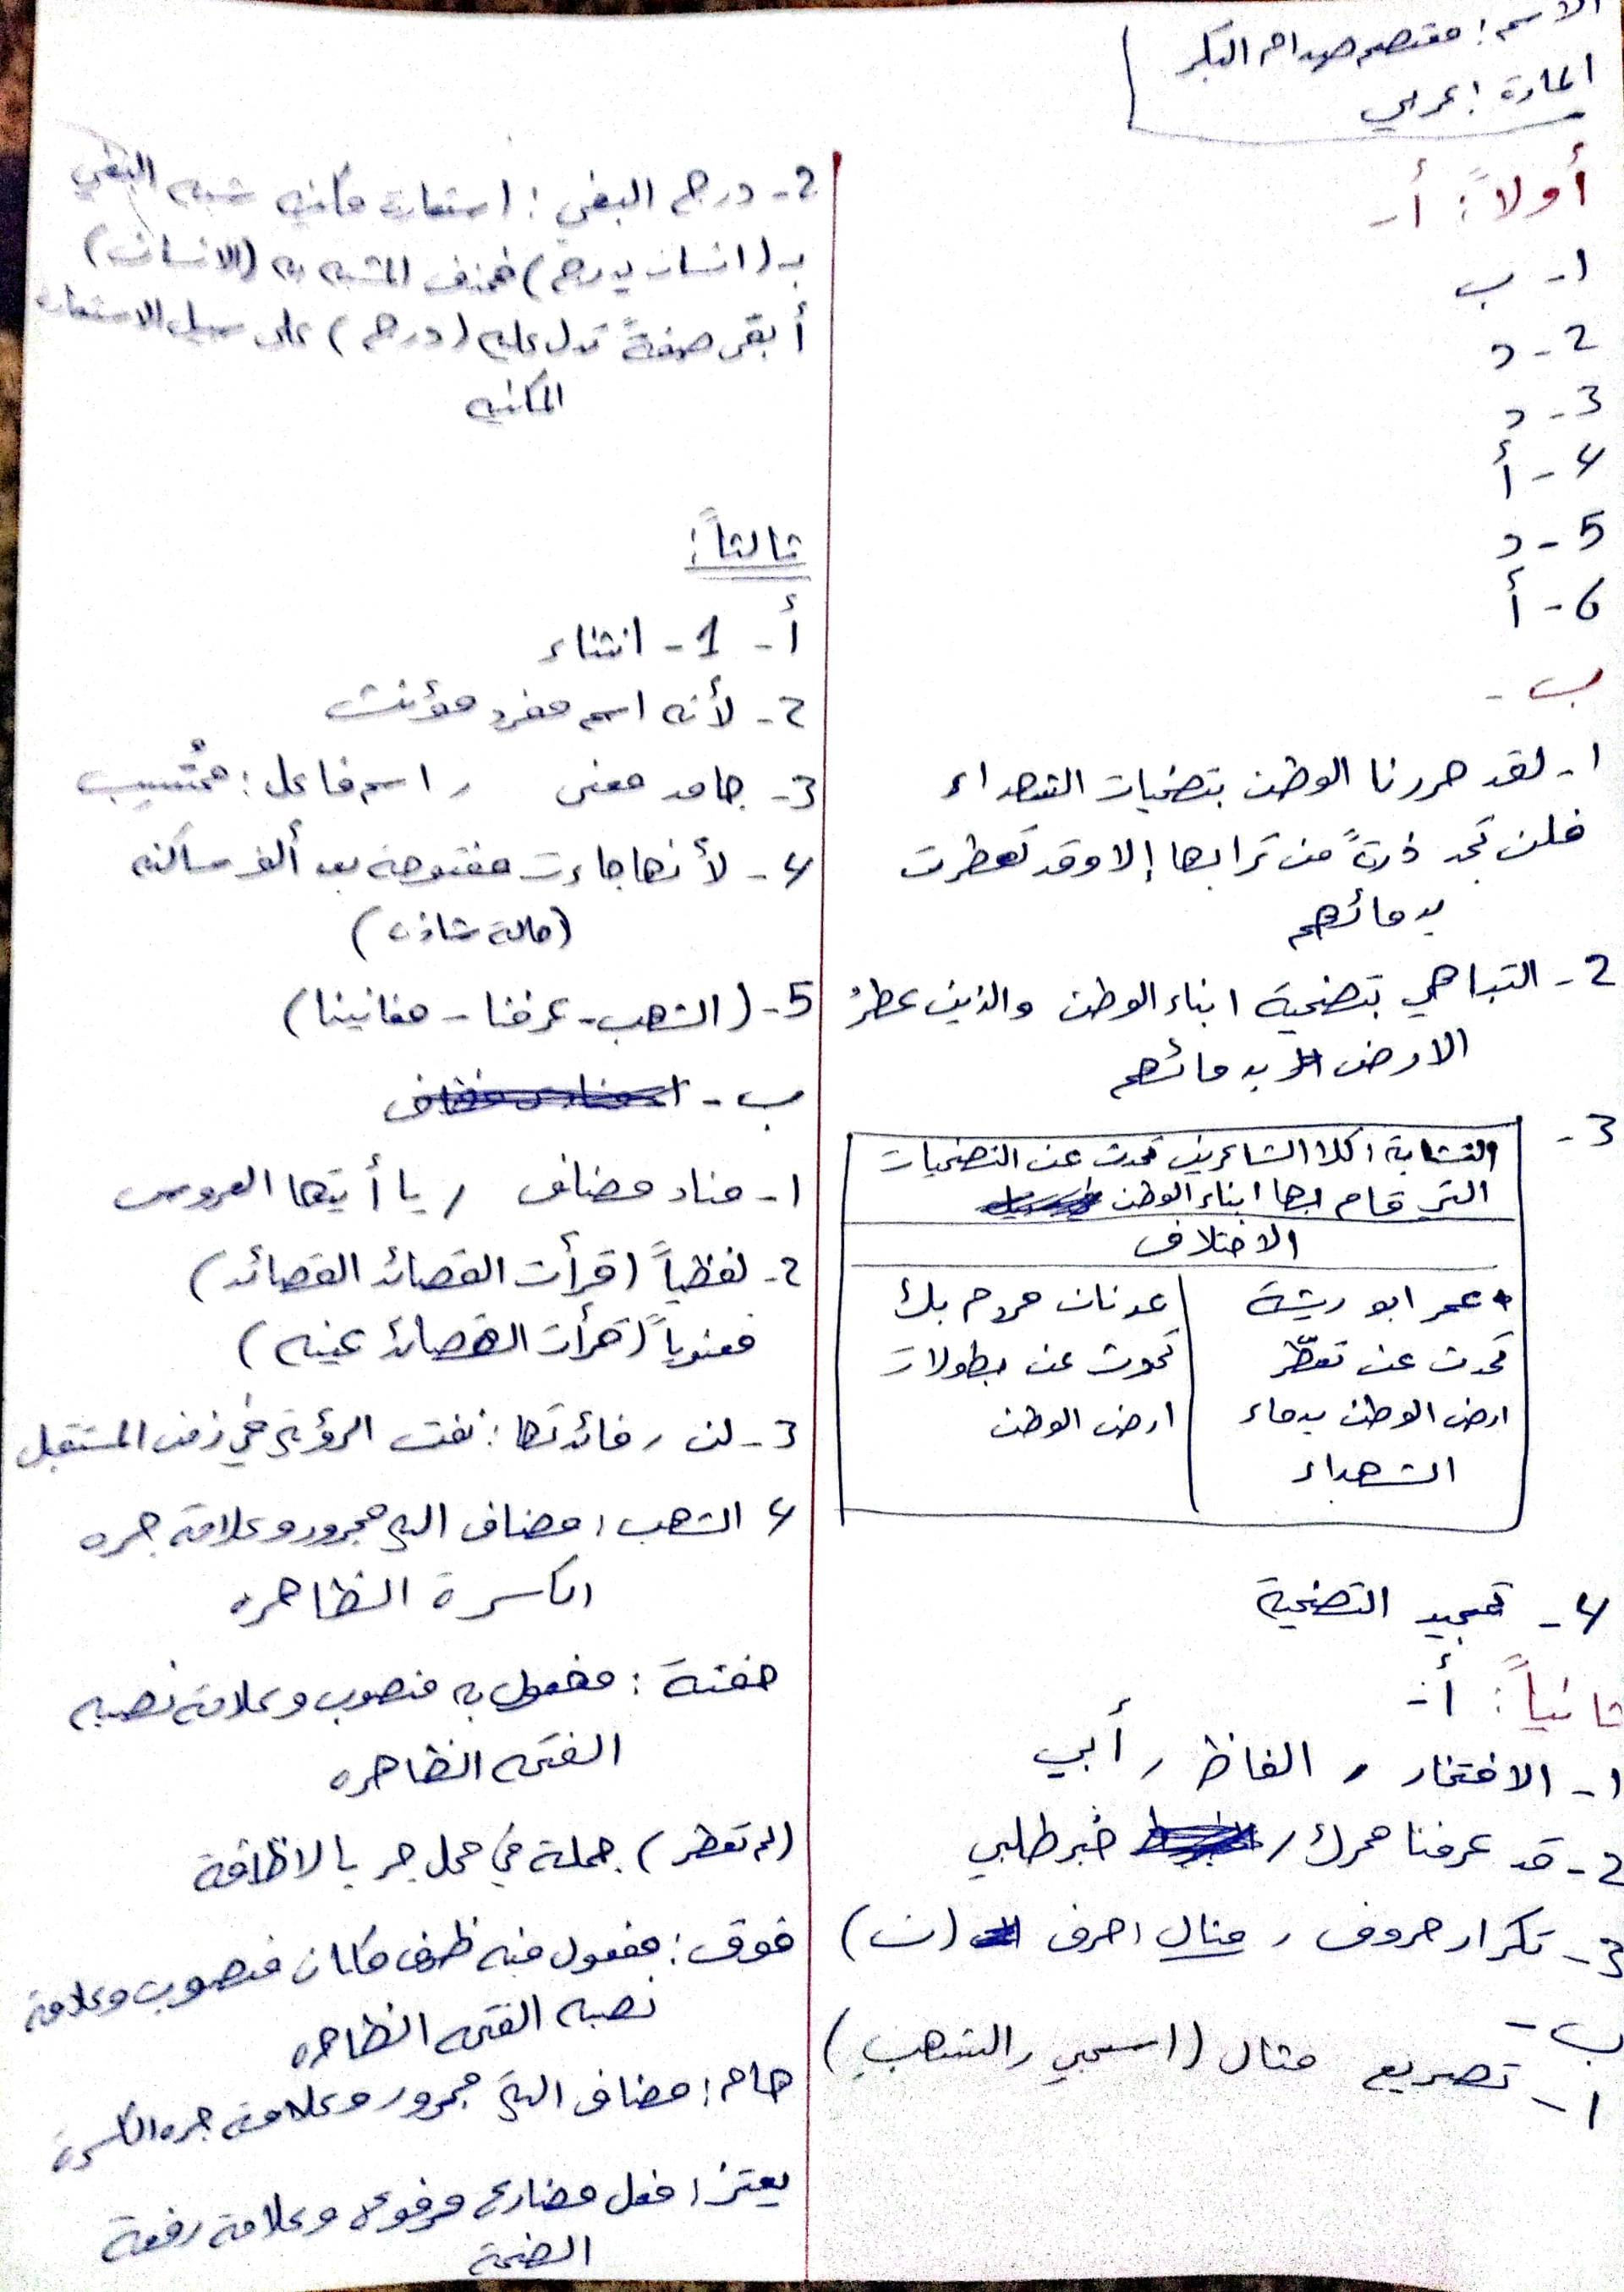 الاسم: معتصم صدام البكر
المادة: عربي
أولاً: أ-
1- ب
2- د
3- د
4- أ
5- د
6- أ
ب-
1- لقد حررنا الوطن بتضحيات الشهداء
فلن تجد ذرةً من ترابها إلا وقد تعطرت
بدمائهم
2- التباهي بتضحية ابناء الوطن والذين عطرُ
الارض بدمائهم
3-
التشابة: كلا الشاعرين تحدث عن التضحيات
التي قام بها ابناء الوطن
الاختلاف
عمر ابو ريشة
تحدث عن تعطّر
ارض الوطن بدماء
الشهداء
عدنان مردم بك
تحدث عن بطولات
ارض الوطن
4- تمجيد التضحية
ثانياً: أ-
1- الافتخار، الفاظ، أبي
2- قد عرفنا مهرك / خبر طلبي
3- تكرار حروف، مثال: حرف (ن)
ب-
1- تصريع مثال (اسحبي، الشهب)
2- درج البغي: استعارة مكنيه شبه البغي
بـ (انسان يدرج) فحذف المشبه به (الانسان)
أبقى صفةً تدل عليه (درج) على سبيل الاستعاره
المكنيه
ثالثاً:
أ- 1- انشاء
2- لأنه اسم مفرد مؤنث
3- جامد معنى، اسم فاعل:
4- لأنها جاءت مفتوحة بعد ألف ساكنه
(حالة شاذه)
5- (الشهب - عرفنا - مغانينا)
ب-
1- مناد مضاف / يا أيتها العروس
2- لفظياً (قرأت القصائد القصائد)
معنوياً (قرأت القصائد عينه)
3- لن، فائدتها: نفت الرؤية في زمن المستقبل
4 الشهب: مضاف اليه مجرور وعلامة جره
الكسرة الظاهره
حفنة: مفعول به منصوب وعلامة نصبه
الفتحه الظاهره
(لم تعطر) جملة في محل جر بالاظافة
فوق: مفعول فيه ظرف مكان منصوب وعلامة
نصبه الفتحه الظاهره
هام: مضاف اليه مجرور وعلامة جره الكسرة
يعتز: فعل مضارع مرفوع وعلامة رفعة
الضمة